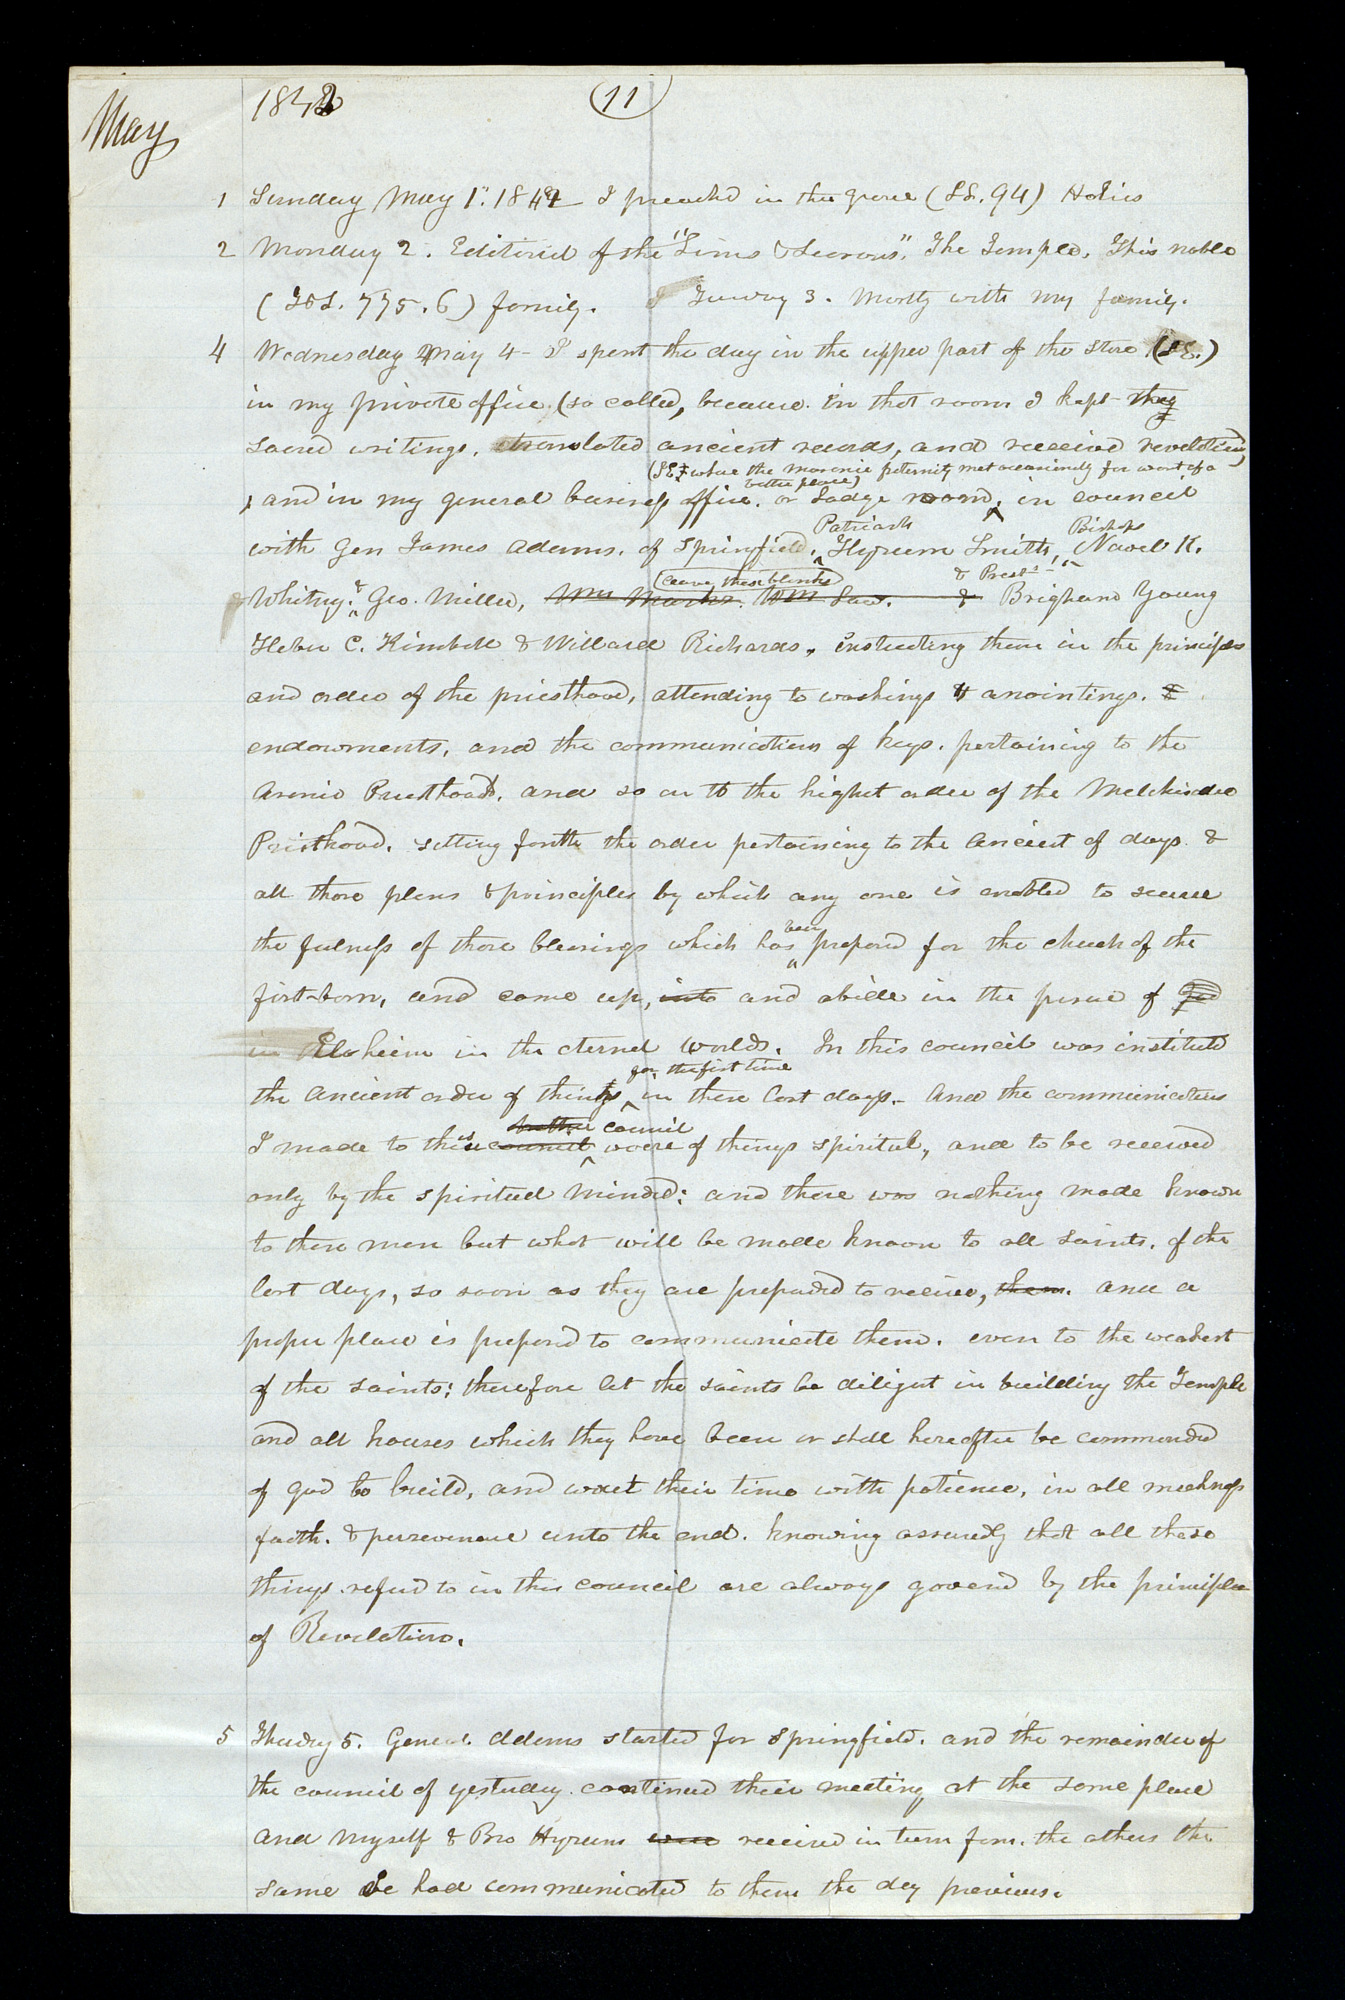 May
1842
(11)
1 Sunday May 1st. 1842 I preached in the grove (94)
2 Monday 2. Editorial of the "Times & Seasons". The Temple. This noble
(T&S. 775.6) family. Tuesday 3. Mostly with my family.
4 Wednesday May 4- I spent the day in the upper part of the Store. (I.E.)
in my private office (so called, because in that room I kept my
sacred writings, translated ancient records, and received revelations)
(I.E. where the masonic fraternity met occasionaly for want of a
better place)
, and in my general business office. or Lodge room, in council
Patriarch Bishops
with Gen James Adams. of Springfield, Hyrum Smith, Newel K.
(leave these blanks) & Presdt
Whitney. & Geo. Miller, Wm Marks. Wm Law. & Brigham Young
Heber C. Kimball & Willard Richards, instructing them in the principles
and order of the priesthood, attending to washings & anointings. &
endowments, and the communications of keys. pertaining to the
Aronic Priesthood. and so on to the highest order of the Melchisedec
Priesthood. setting forth the order pertaining to the ancient of days &
all those plans & principles by which any one is enabled to secure
been
the fulness of those blessings which has prepared for the church of the
first-born, and come up, into and abide in the presence of God
in Eloheim in the eternal worlds. In this council was instituted
for the first time
the ancient order of things in these last days. And the communications
council
I made to this council were of things spiritual, and to be received
only by the spiritual minded: and there was nothing made known
to these men but what will be made known to all saints, of the
last days, so soon as they are prepared to recieve, them. and a
proper place is prepared to communicate them. even to the weakest
of the saints: therefore let the saints be diligent in building the Temple
and all houses which they have been or shall hereafter be commanded
of god to build, and wait their time with patience, in all meekness
faith. & perseverance unto the end. knowing assuredly that all these
things refered to in this council are always governd by the principles
of Revelation.
5 Thursday 5. General Adams started for Springfield. and the remainder of
the council of yesterday. continued their meeting at the same place
and myself & Bro Hyrum were received in turn from. the others the
same I had communicated to them the day previous.